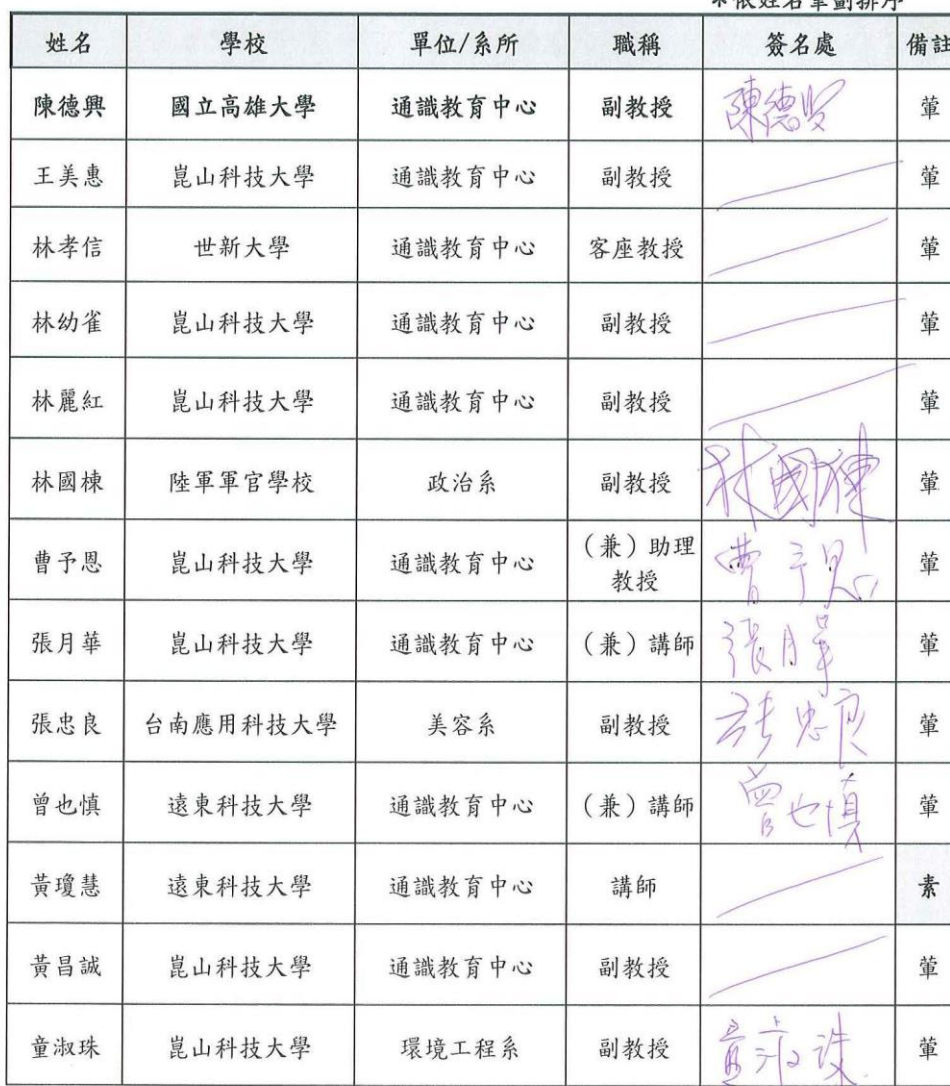 *依姓名筆劃排序
姓名 學校 單位/系所 職稱 簽名處 備註
陳德興 國立高雄大學 通識教育中心 副教授 陳德興 葷
王美惠 崑山科技大學 通識教育中心 副教授 葷
林孝信 世新大學 通識教育中心 客座教授 葷
林幼雀 崑山科技大學 通識教育中心 副教授 葷
林麗紅 崑山科技大學 通識教育中心 副教授 葷
林國棟 陸軍軍官學校 政治系 副教授 林國棟 葷
曹予恩 崑山科技大學 通識教育中心 (兼)助理 曹予恩 葷
教授
張月華 崑山科技大學 通識教育中心 (兼)講師 張月華 葷
張忠良 台南應用科技大學 美容系 副教授 張忠良 葷
曾也慎 遠東科技大學 通識教育中心 (兼)講師 曾也慎 葷
黃瓊慧 遠東科技大學 通識教育中心 講師 素
黃昌誠 崑山科技大學 通識教育中心 副教授 葷
童淑珠 崑山科技大學 環境工程系 副教授 童淑珠 葷